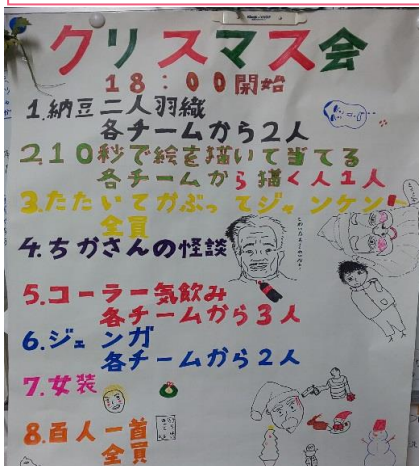 クリスマス会
18:00開始
1.納豆二人羽織
各チームから2人
2.10秒で絵を描いて当てる
各チームから描く人1人
3.たたいてかぶってジャンケン
全員
4.ちかさんの怪談
5.コーラ一気飲み
各チームから3人
6.ジェンガ
各チームから2人
7.女装
8.百人一首
全員